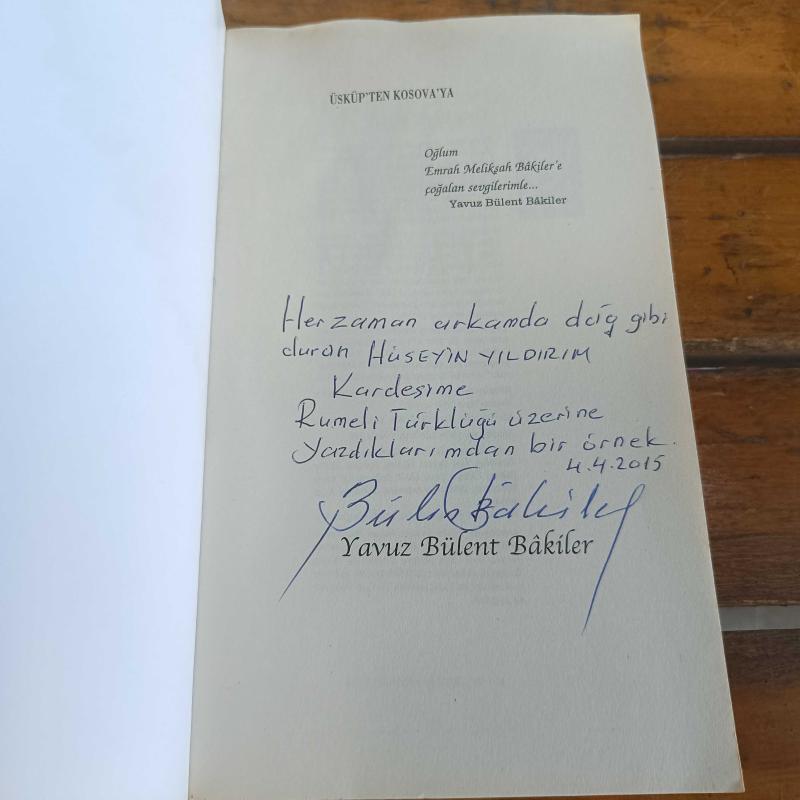 ÜSKÜP'TEN KOSOVA'YA
Oğlum
Emrah Melikşah Bâkiler'e
çoğalan sevgilerimle...
Yavuz Bülent Bâkiler
Herzaman arkamda dağ gibi
duran HÜSEYİN YILDIRIM
Kardeşime
Rumeli Türklüğü üzerine
yazdıklarımdan bir örnek.
4.4.2015
Bülent Bâkiler
Yavuz Bülent Bâkiler